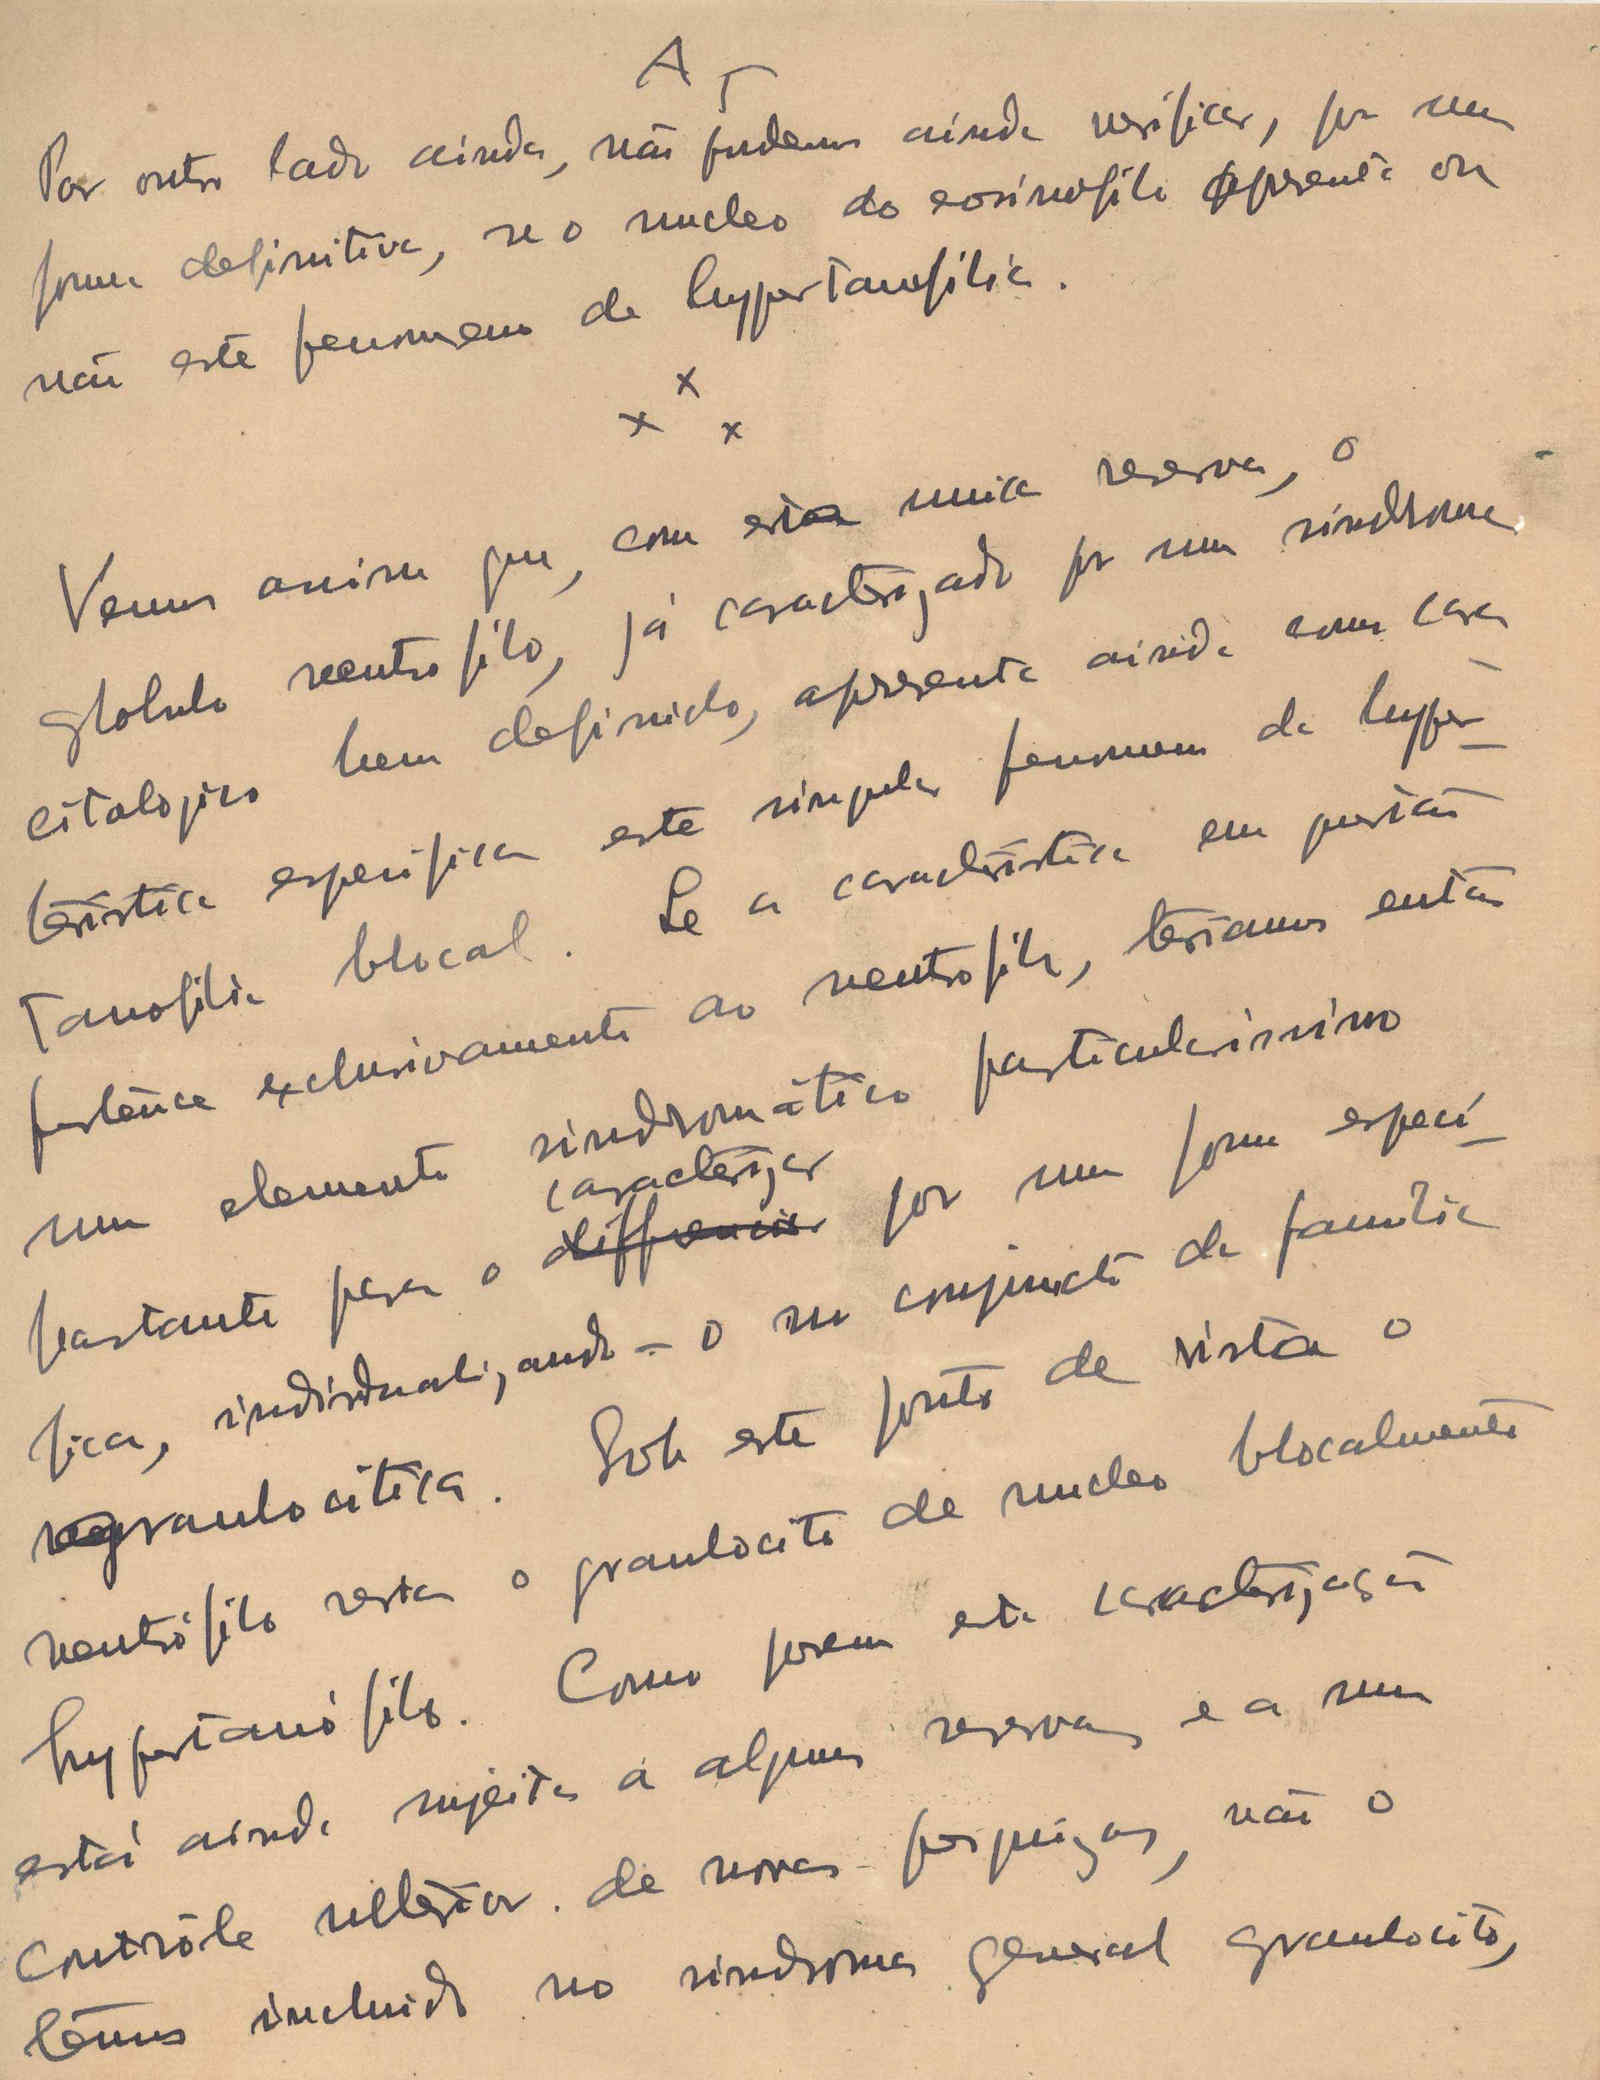 A T
Por outro lado ainda, não pudemos ainda verificar, por uma
forma definitiva, se o nucleo do eosinofilo apresenta ou
não este fenomeno de hypertanofilia.
x x x
Vemos assim que, com esta unica reserva, o
globulo neutrofilo, já caracterizado por um sindroma
citologico bem definido, apresenta ainda como carac
teristica especifica este singular fenomeno de hyper-
tanofilia blocal. Se a caracteristica em questão
pertence exclusivamente ao neutrofilo, teriamos então
um elemento sindromático particularissimo
caracterizar
bastante para o differenciar por uma forma especi-
fica, individualizando-o no conjuncto da familia
granulocitica. Sob este ponto de vista o
neutrófilo seria o granulocito de nucleo blocalmente
hypertanófilo. Como porem esta caracterização
está ainda sujeita a algumas reservas e a um
contrôle ulterior de novas pesquizas, não o
temos incluido no sindroma general granulocito,